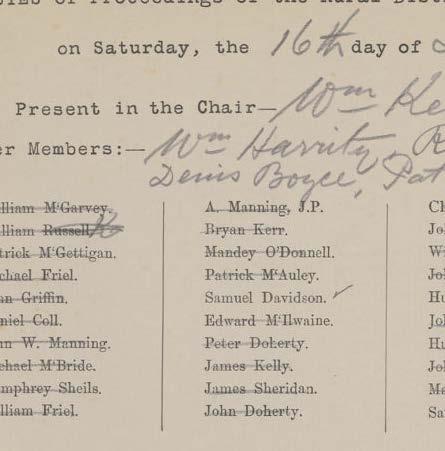 on Saturday, the 16th day of
Present in the Chair— Wm Ke
er Members:— Wm Harrity, R
Denis Boyce, Pat
lliam M'Garvey.
lliam Russell
trick M'Gettigan.
chael Friel.
hn Griffin.
niel Coll.
hn W. Manning.
chael M'Bride.
mphrey Sheils.
lliam Friel.
A. Manning, J.P.
Bryan Kerr.
Mandey O'Donnell.
Patrick M'Auley.
Samuel Davidson. ✓
Edward M'Ilwaine.
Peter Doherty.
James Kelly.
James Sheridan.
John Doherty.
Ch
Jo
W
Jo
Hu
Jo
Hu
Jo
Ma
Sa